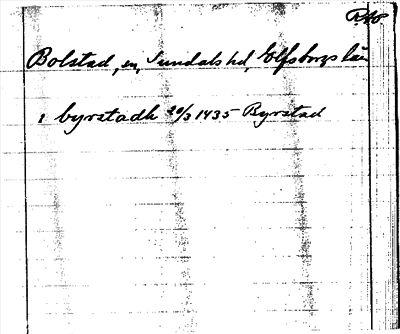 Bolstad, en, Sundals hd, Elfsborgs län
i byrstadh 20/3 1435 Byrstad